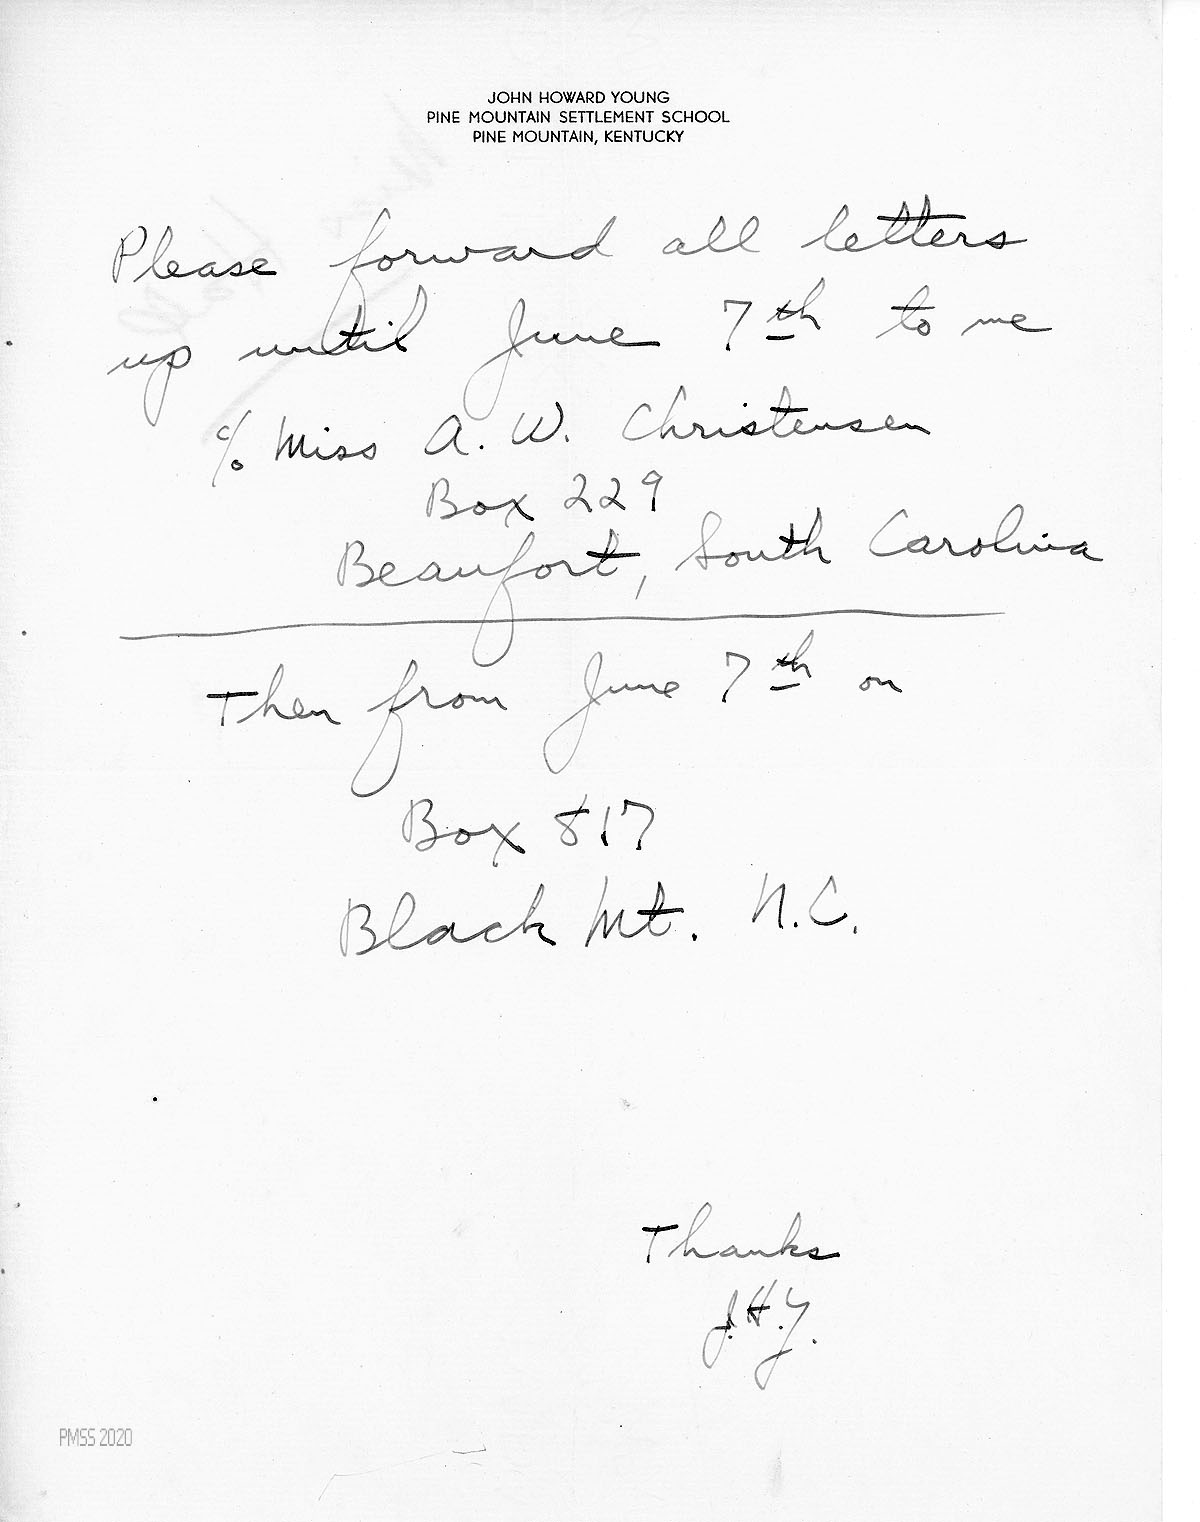 JOHN HOWARD YOUNG
PINE MOUNTAIN SETTLEMENT SCHOOL
PINE MOUNTAIN, KENTUCKY
Please forward all letters
up until June 7th to me
c/o Miss A. W. Christensen
Box 229
Beaufort, South Carolina
Then from June 7th on
Box 817
Black Mt. N.C.
Thanks
J.H.Y.
PMSS 2020